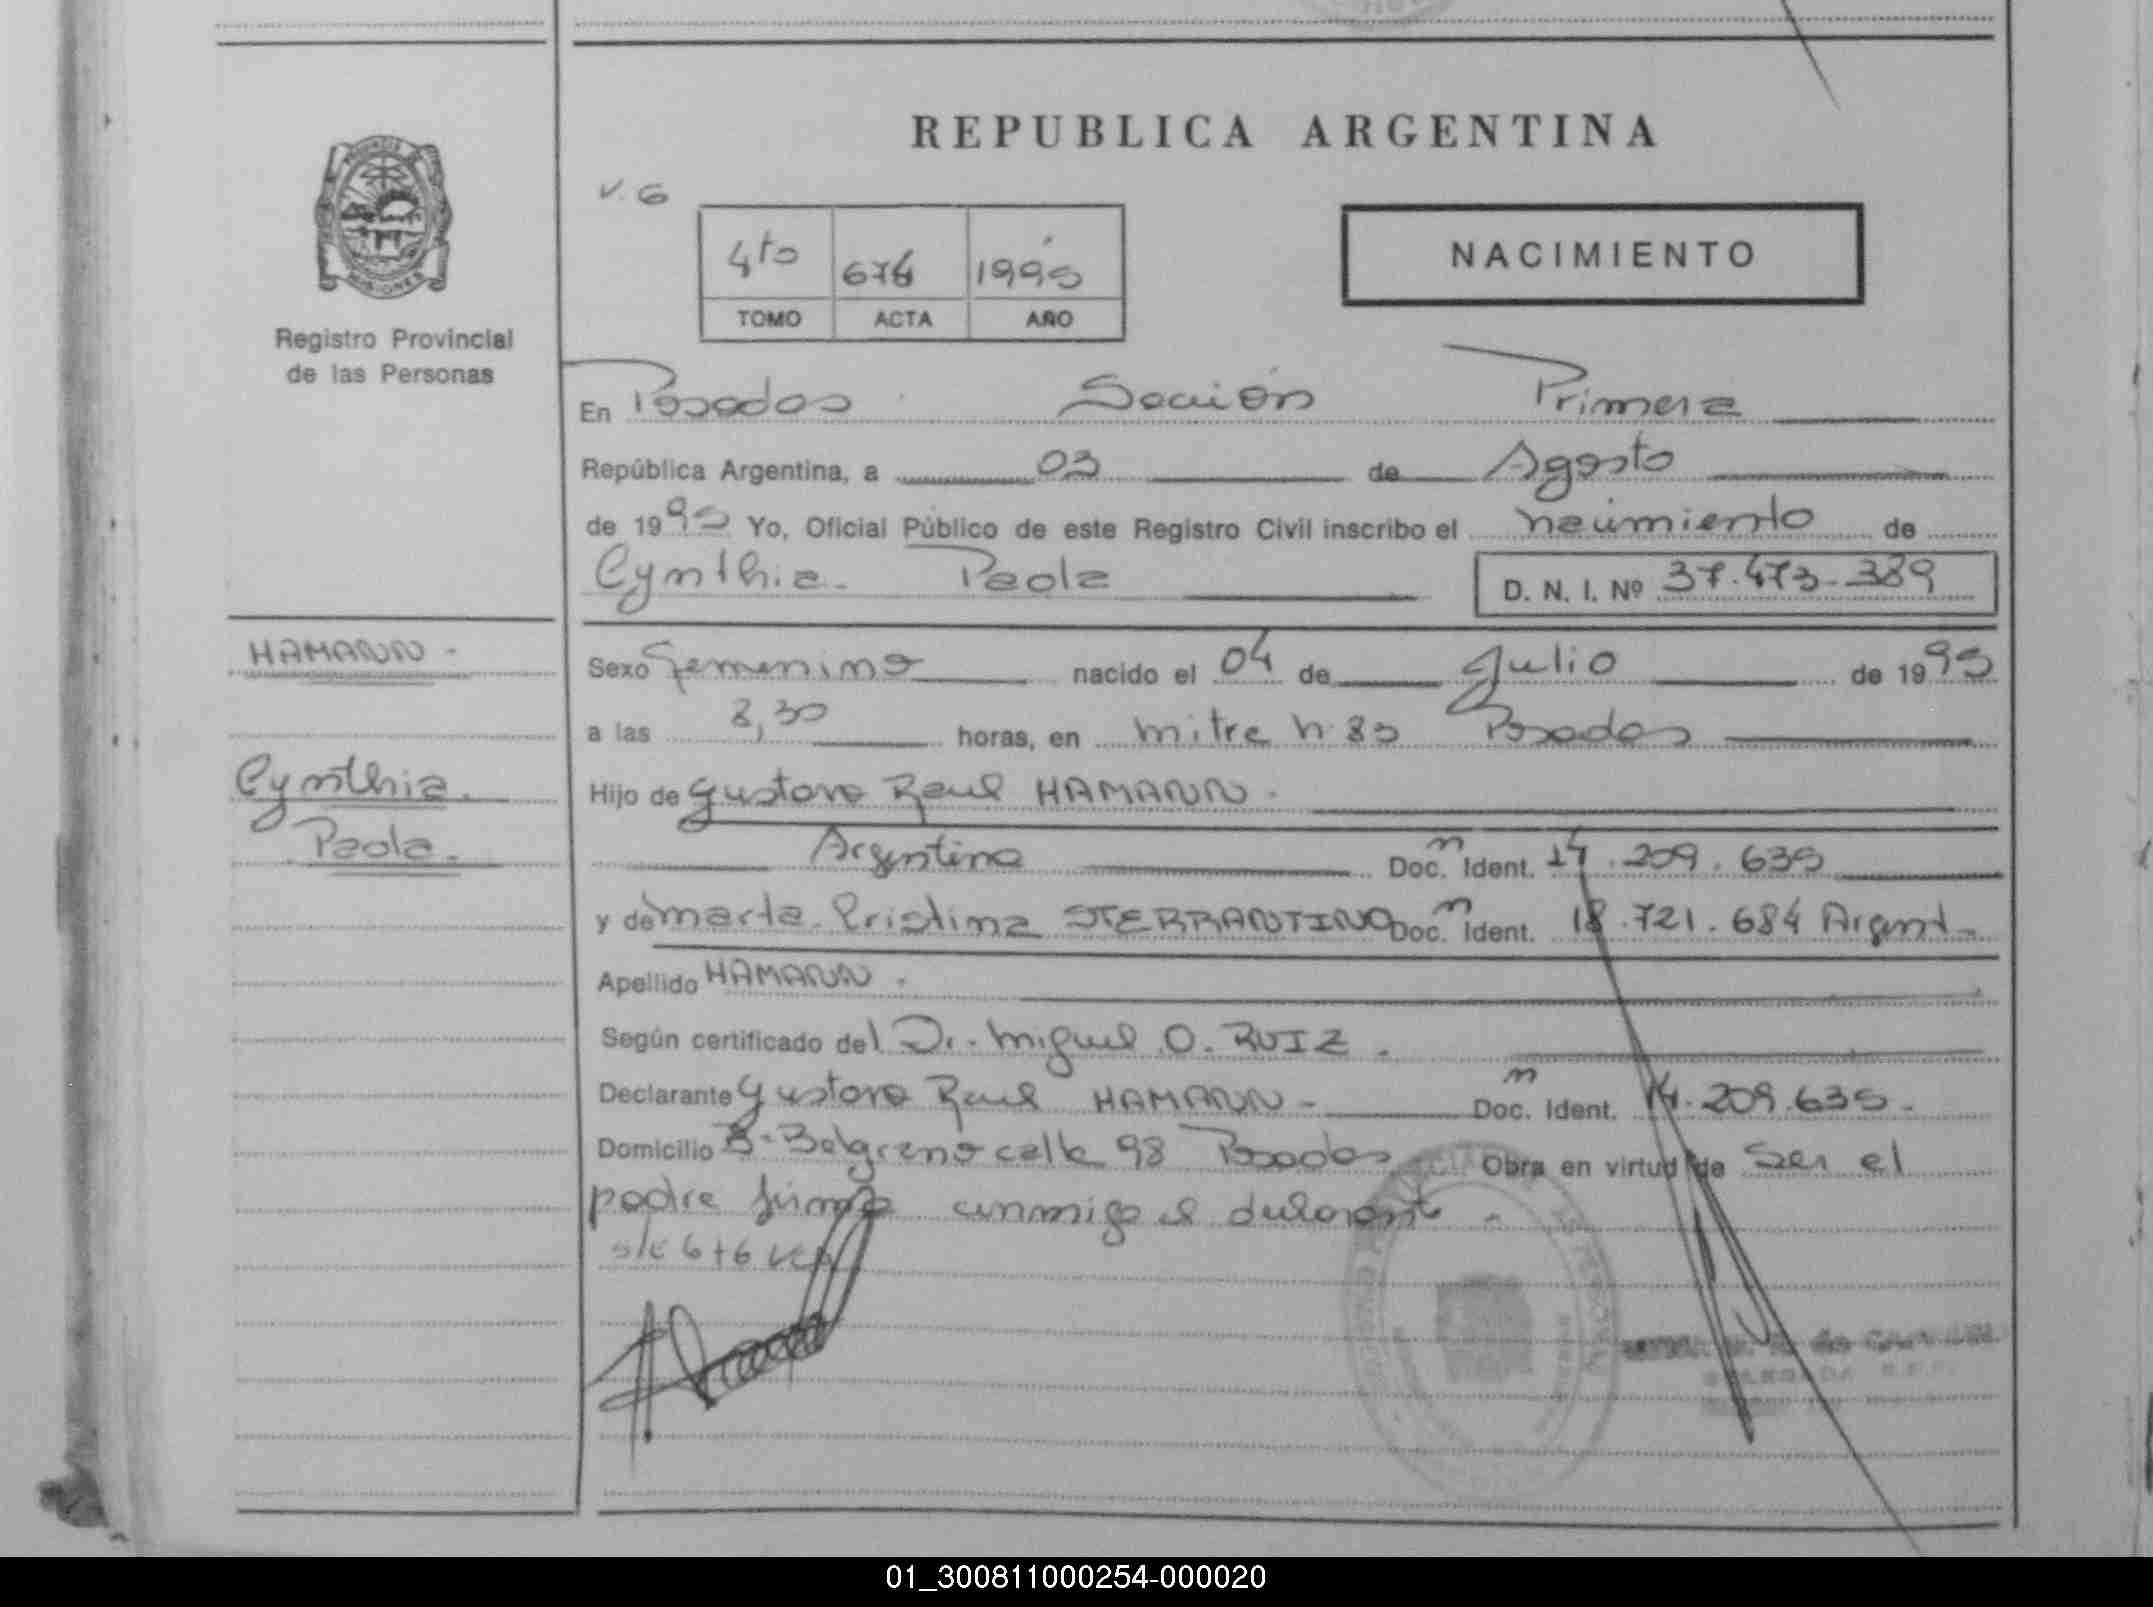 REPUBLICA ARGENTINA
V. 6
4to 676 1995
TOMO ACTA AÑO
NACIMIENTO
PROVINCIA DE
MISIONES
Registro Provincial
de las Personas
En Posadas Sección Primera
República Argentina, a 03 de Agosto
de 1995 Yo, Oficial Público de este Registro Civil inscribo el nacimiento de
Cynthia Paola D. N. I. Nº 37.473.389
HAMANN -
Cynthia
Paola.
Sexo Femenino nacido el 04 de Julio de 1995
a las 8,30 horas, en mitre n 85 Posadas
Hijo de Gustavo Raul HAMANN -
Argentino Doc. n Ident. 14.209.635
y de Marta Cristina STERRANTINO Doc. n Ident. 18.721.684 Argent.
Apellido HAMANN.
Según certificado del Dr. Miguel O. RUIZ.
Declarante Gustavo Raul HAMANN - Doc. n Ident. 14.209.635.
Domicilio B- Belgrano calle 98 Posadas Obra en virtud de Ser el
padre firma conmigo el declarante -
s/e 6 t 6 Vep
01_300811000254-000020